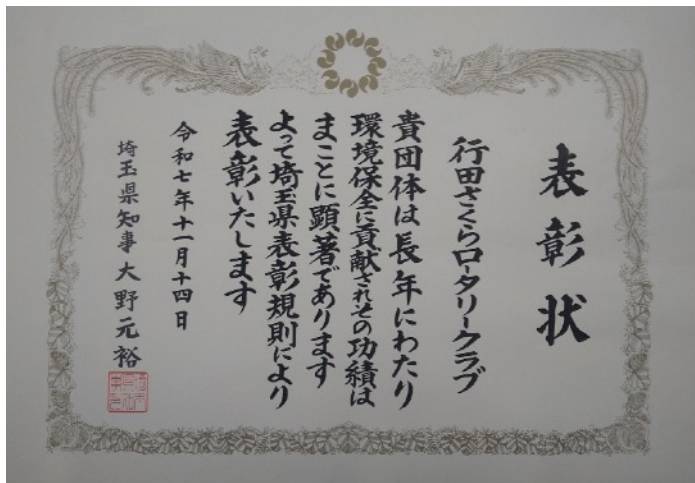 表彰状
行田さくらロータリークラブ
貴団体は長年にわたり
環境保全に貢献されその功績は
まことに顕著であります
よって埼玉県表彰規則により
表彰いたします
令和七年十一月十四日
埼玉県知事 大野元裕